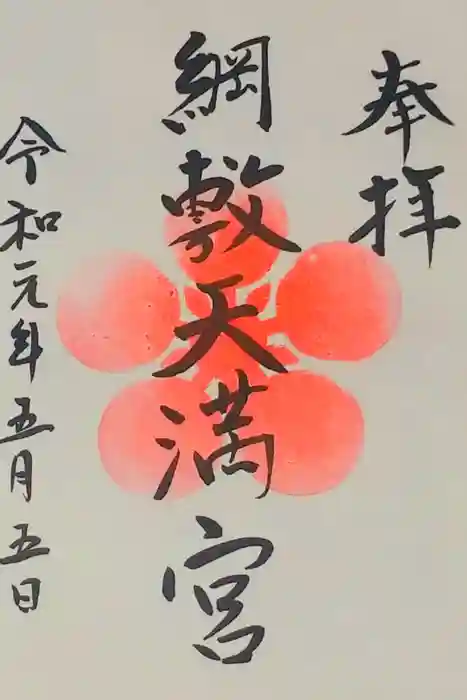 奉拝
綱敷天満宮
令和元年五月五日